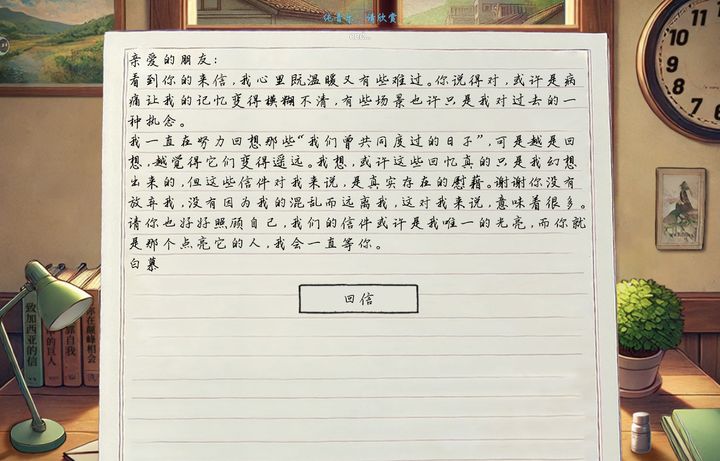 纯音乐，请欣赏
亲爱的朋友：
看到你的来信，我心里既温暖又有些难过。你说得对，或许是病
痛让我的记忆变得模糊不清，有些场景也许只是我对过去的一
种执念。
我一直在努力回想那些“我们曾共同度过的日子”，可是越是回
想，越觉得它们变得遥远。我想，或许这些回忆真的只是我幻想
出来的，但这些信件对我来说，是真实存在的慰藉。谢谢你没有
放弃我，没有因为我的混乱而远离我，这对我来说，意味着很多。
请你也好好照顾自己，我们的信件或许是我唯一的光亮，而你就
是那个点亮它的人，我会一直等你。
白慕
回信
致加西亚的信
的巨人
靠自我
你在巅峰相会
10
9
8
7
6
5
4